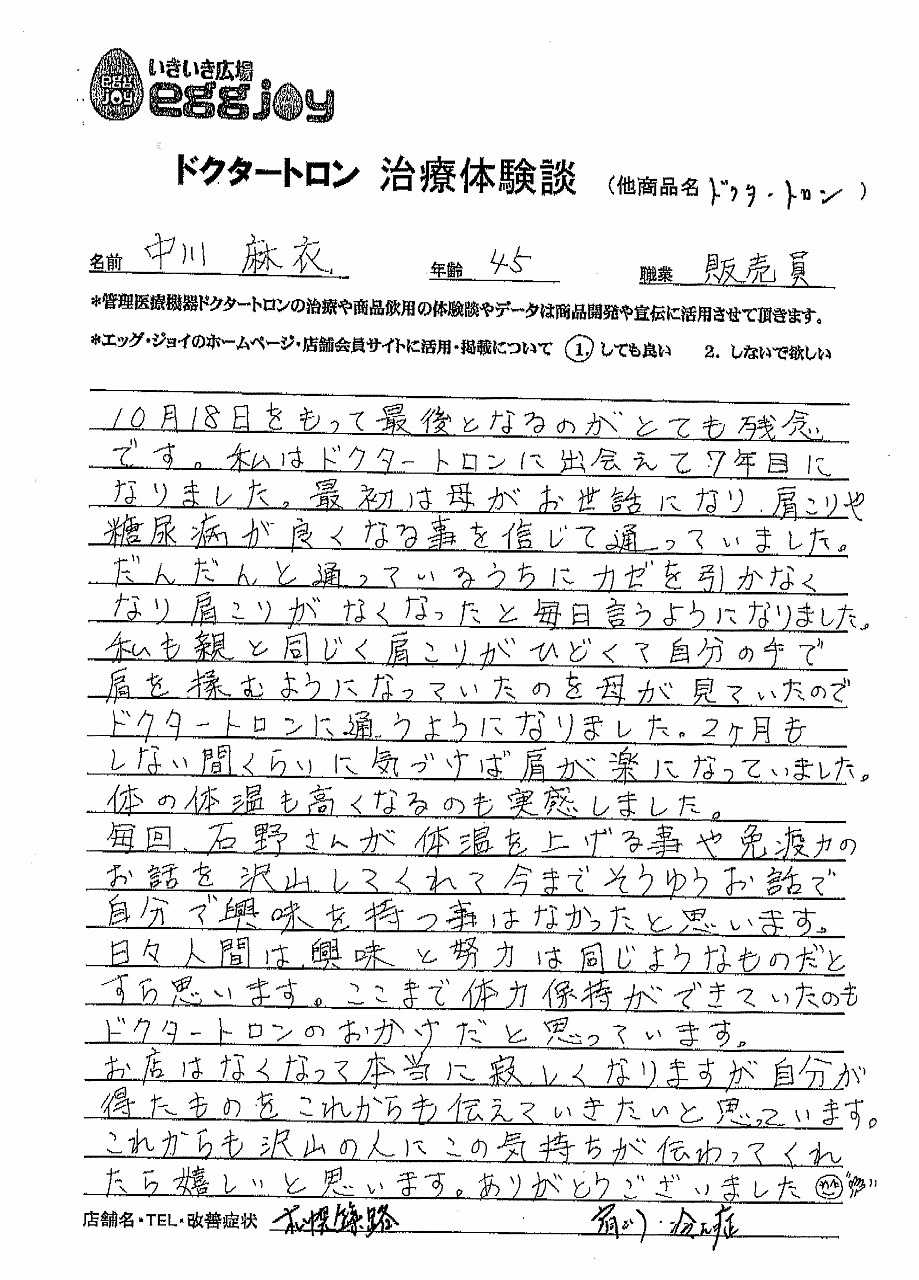 いきいき広場
egg joy
eggjoy
ドクタートロン 治療体験談 (他商品名 ドクタートロン )
名前 中川 麻衣 年齢 45 職業 販売員
*管理医療機器ドクタートロンの治療や商品飲用の体験談やデータは商品開発や宣伝に活用させて頂きます。
*エッグ・ジョイのホームページ・店舗会員サイトに活用・掲載について 1. しても良い 2. しないで欲しい
10月18日をもって最後となるのがとても残念
です。私はドクタートロンに出会えて7年目に
なりました。最初は母がお世話になり、肩こりや
糖尿病が良くなる事を信じて通っていました。
だんだんと通っているうちにカゼを引かなく
なり肩こりがなくなったと毎日言うようになりました。
私も親と同じく肩こりがひどくて自分の手で
肩を揉むようになっていたのを母が見ていたので
ドクタートロンに通うようになりました。2ヶ月も
しない間くらいに気づけば肩が楽になっていました。
体の体温も高くなるのも実感しました。
毎回、石野さんが体温を上げる事や免疫力の
お話を沢山してくれて今までそうゆうお話で
自分で興味を持つ事はなかったと思います。
日々人間は興味と努力は同じようなものだと
すら思います。ここまで体力保持ができていたのも
ドクタートロンのおかげだと思っています。
お店はなくなって本当に寂しくなりますが自分が
得たものをこれからも伝えていきたいと思っています。
これからも沢山の人にこの気持ちが伝わってくれ
たら嬉しいと思います。ありがとうございました
店舗名・TEL・改善症状 札幌 肩こり・冷え症